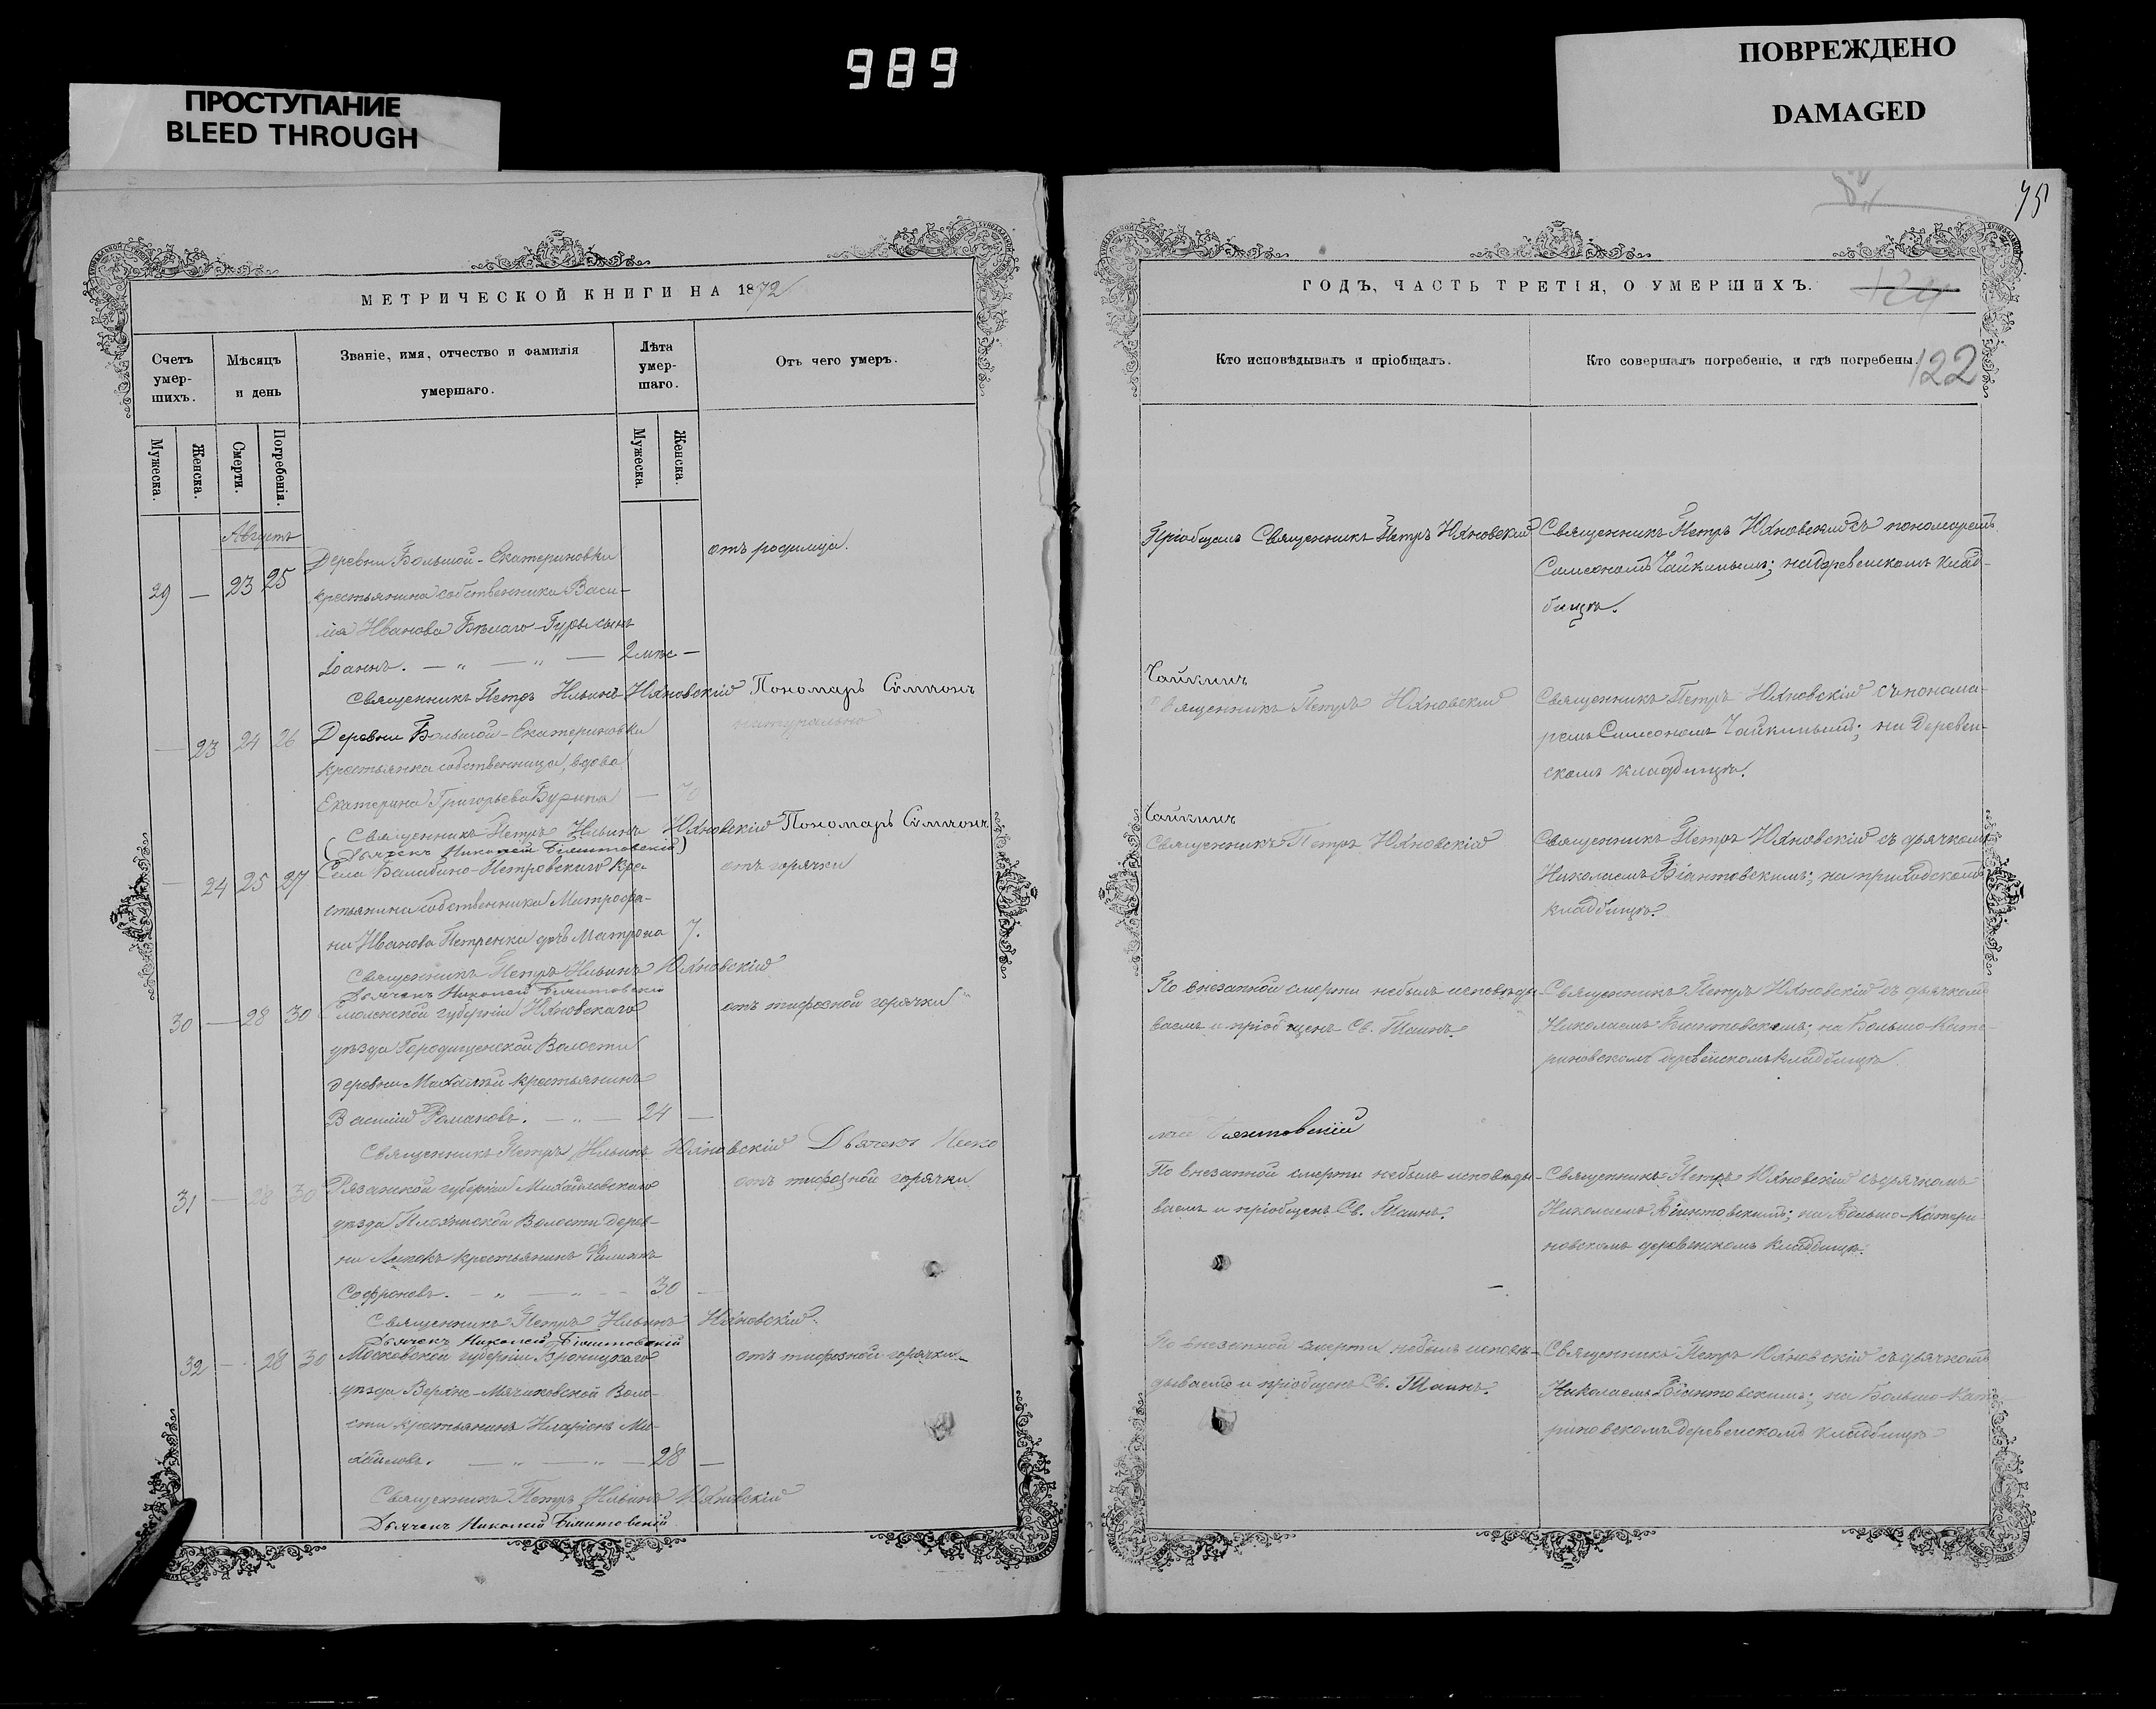 989
ПРОСТУПАНИЕ
BLEED THROUGH
ПОВРЕЖДЕНО
DAMAGED
75
МЕТРИЧЕСКОЙ КНИГИ НА 1872
Счетъ умер- шихъ.
Мѣсяцъ и день
Званіе, имя, отчество и фамилія умершаго.
Лѣта умер- шаго.
Отъ чего умеръ.
Мужеска.
Женска.
Смерти.
Погребенія.
Мужеска.
Женска.
Августъ
29 — 23 25
Деревни Большой-Екатериновки
крестьянина собственника Васи-
лія Иванова Бѣлаго-Гуры сынъ
Іоаннъ. — " — " — 2 мѣс —
отъ родимца.
Священникъ Петръ Ильинъ Юхновскій Пономарь Сімѵонъ
— 23 24 26
Деревни Большой-Екатериновки
крестьянка собственница, вдова
Екатерина Григорьева — 70
натурально
Священникъ Петръ Ильинъ Юхновскій Пономарь Сімѵонъ
(Дьячекъ Николай Біянтовскій)
— 24 25 27
Села Балабино-Петровскаго кре-
стьянина собственника Митрофа-
на Иванова Петренка дочь Матрона 7.
отъ горячки
Священникъ Петръ Ильинъ Юхновскій
Дьячекъ Николай Біянтовскій
30 — 28 30
Смоленской губерніи Юхновскаго
уѣзда Городищенской Волости
деревни крестьянинъ
Василій Романовъ. — " — 24 —
отъ тифозной горячки
Священникъ Петръ Ильинъ Юхновскій Дьячекъ Нико
31 — 28 30
Рязанской губерніи Михайловскаго
уѣзда Волости дерев-
ни крестьянинъ Филиппъ
Софроновъ. — " — " — 30 —
отъ тифозной горячки
Священникъ Петръ Ильинъ Юхновскій.
Дьячекъ Николай Біянтовскій
32 — 28 30
Московской губерніи Бронницкаго
уѣзда Верхне-Мячиковской Воло-
сти крестьянинъ Иларіонъ Ми-
хайловъ. — " — " — 28 —
отъ тифозной горячки
Священникъ Петръ Ильинъ Юхновскій
Дьячекъ Николай Біянтовскій
ГОДЪ, ЧАСТЬ ТРЕТІЯ, О УМЕРШИХЪ.
124
122
Кто исповѣдывалъ и пріобщалъ.
Кто совершалъ погребеніе, и гдѣ погребены.
Пріобщалъ Священникъ Петръ Юхновскій
Священникъ Петръ Юхновскій съ пономаремъ
Симеономъ Чайкинымъ; на деревенскомъ клад-
бищѣ.
Чайкинъ
Священникъ Петръ Юхновскій
Священникъ Петръ Юхновскій съ понома-
ремъ Симеономъ Чайкинымъ; на деревен-
скомъ кладбищѣ.
Чайкинъ
Священникъ Петръ Юхновскій
Священникъ Петръ Юхновскій съ дьячкомъ
Николаемъ Біянтовскимъ; на приходскомъ
кладбищѣ.
По внезапной смерти небылъ исповѣды-
ваемъ и пріобщенъ Св. Таинъ.
Священникъ Петръ Юхновскій съ дьячкомъ
Николаемъ Біянтовскимъ; на Больше-Кате
риновскомъ деревенскомъ кладбищѣ.
лай Біянтовскій
По внезапной смерти небылъ исповѣды-
ваемъ и пріобщенъ Св. Таинъ.
Священникъ Петръ Юхновскій съ дьячкомъ
Николаемъ Біянтовскимъ; на Больше-Катери
новскомъ деревенскомъ кладбищѣ.
По внезапной смерти небылъ исповѣ-
дываемъ и пріобщенъ Св. Таинъ.
Священникъ Петръ Юхновскій съ дьячкомъ
Николаемъ Біянтовскимъ; на Больше-Кате
риновскомъ деревенскомъ кладбищѣ